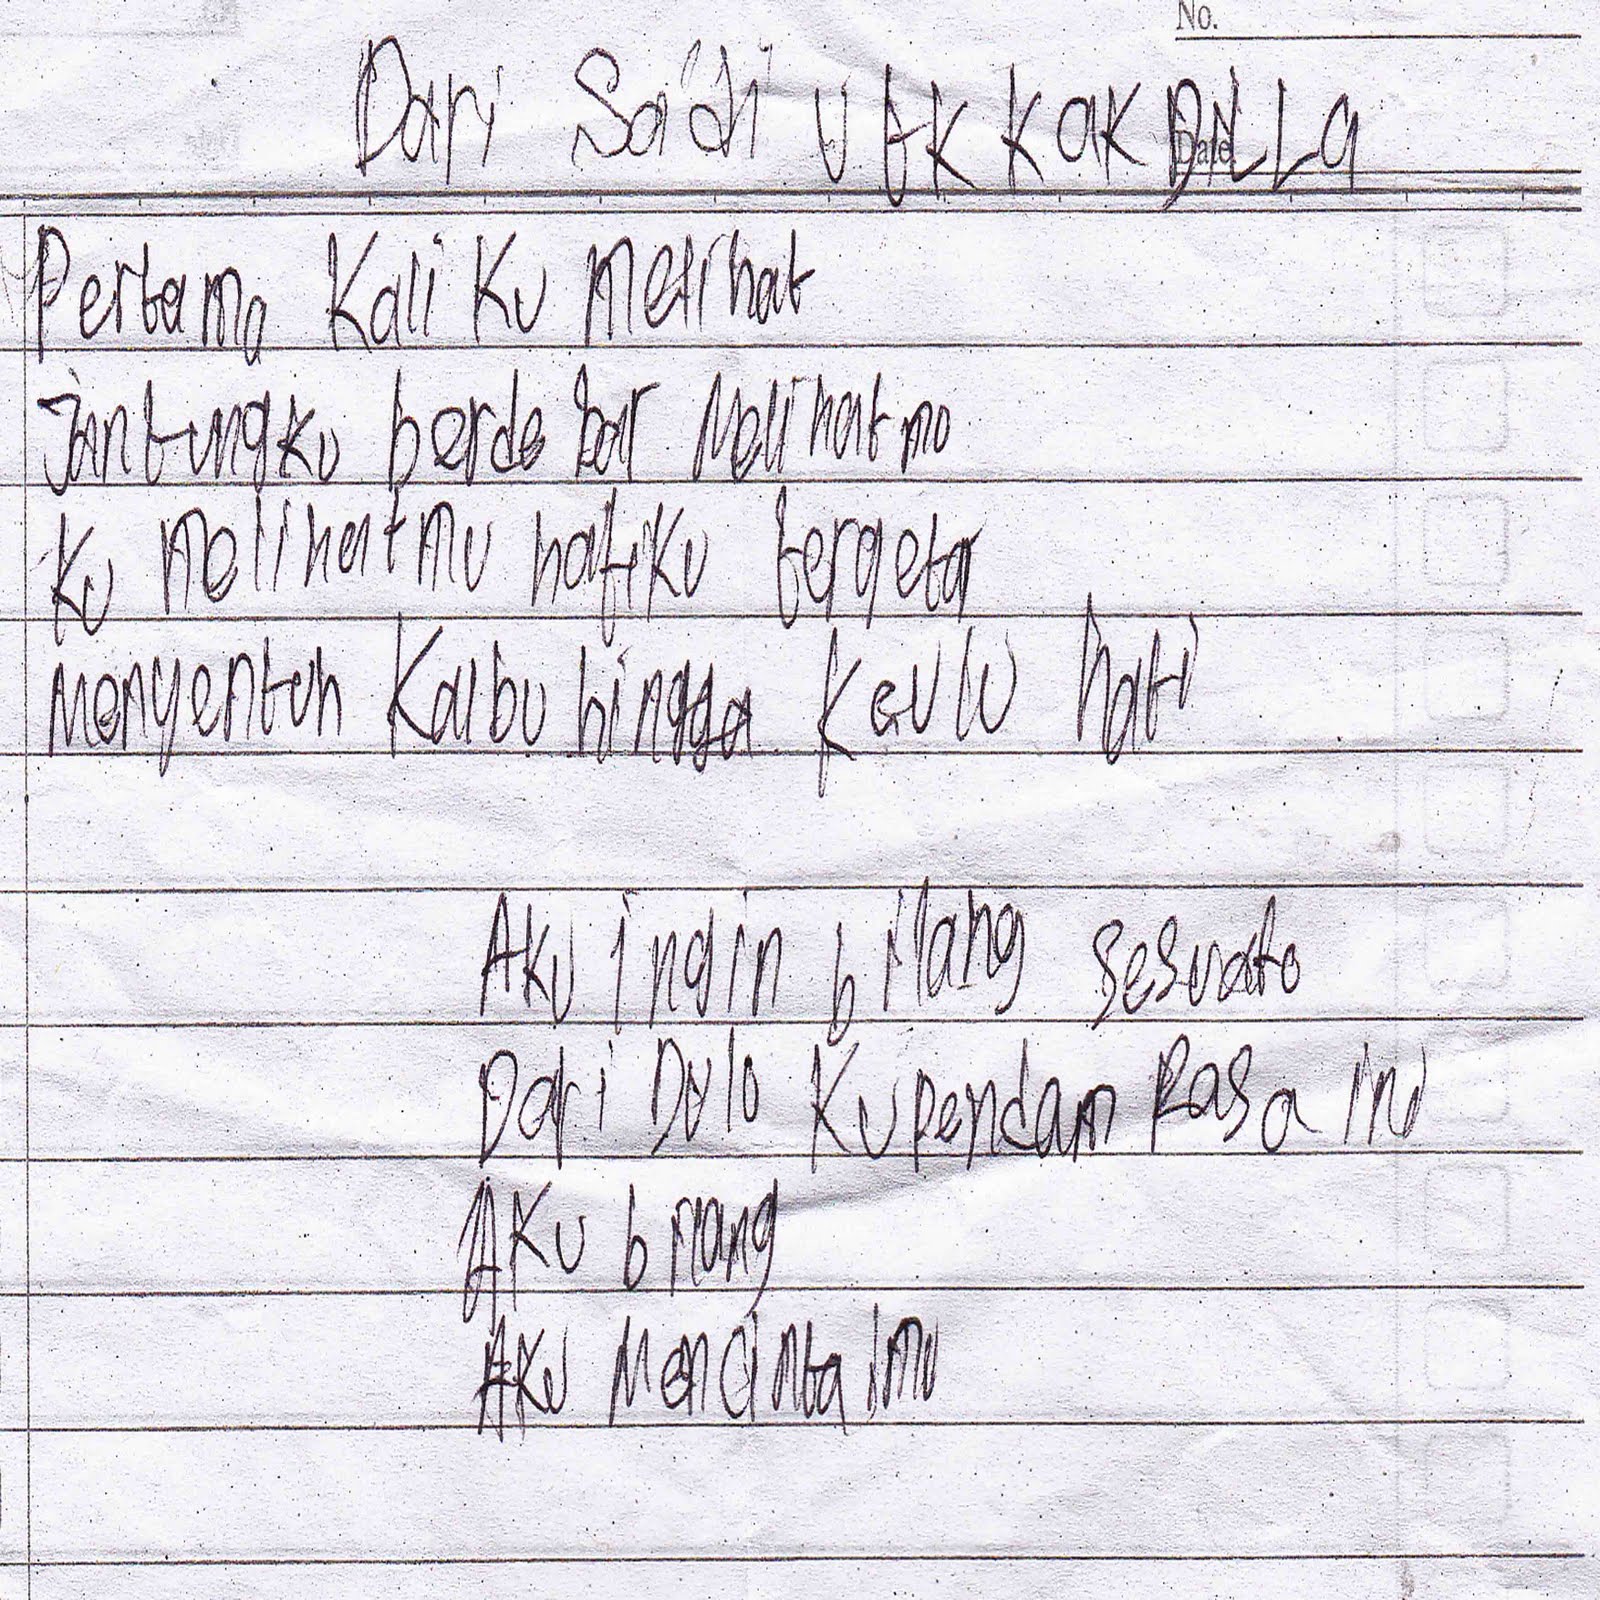 No.
Dari Sadi Utk Kak DiLLa
Date
Pertama Kali Ku melihat
Jantungku berdebar Melihatmu
Ku melihatmu hatiku tergetar
Menyentuh Kalbu hingga Keulu hati
Aku ingin bilang sesuatu
Dari Dulu Kupendam Rasa ini
Aku bilang
Aku Mencintaimu